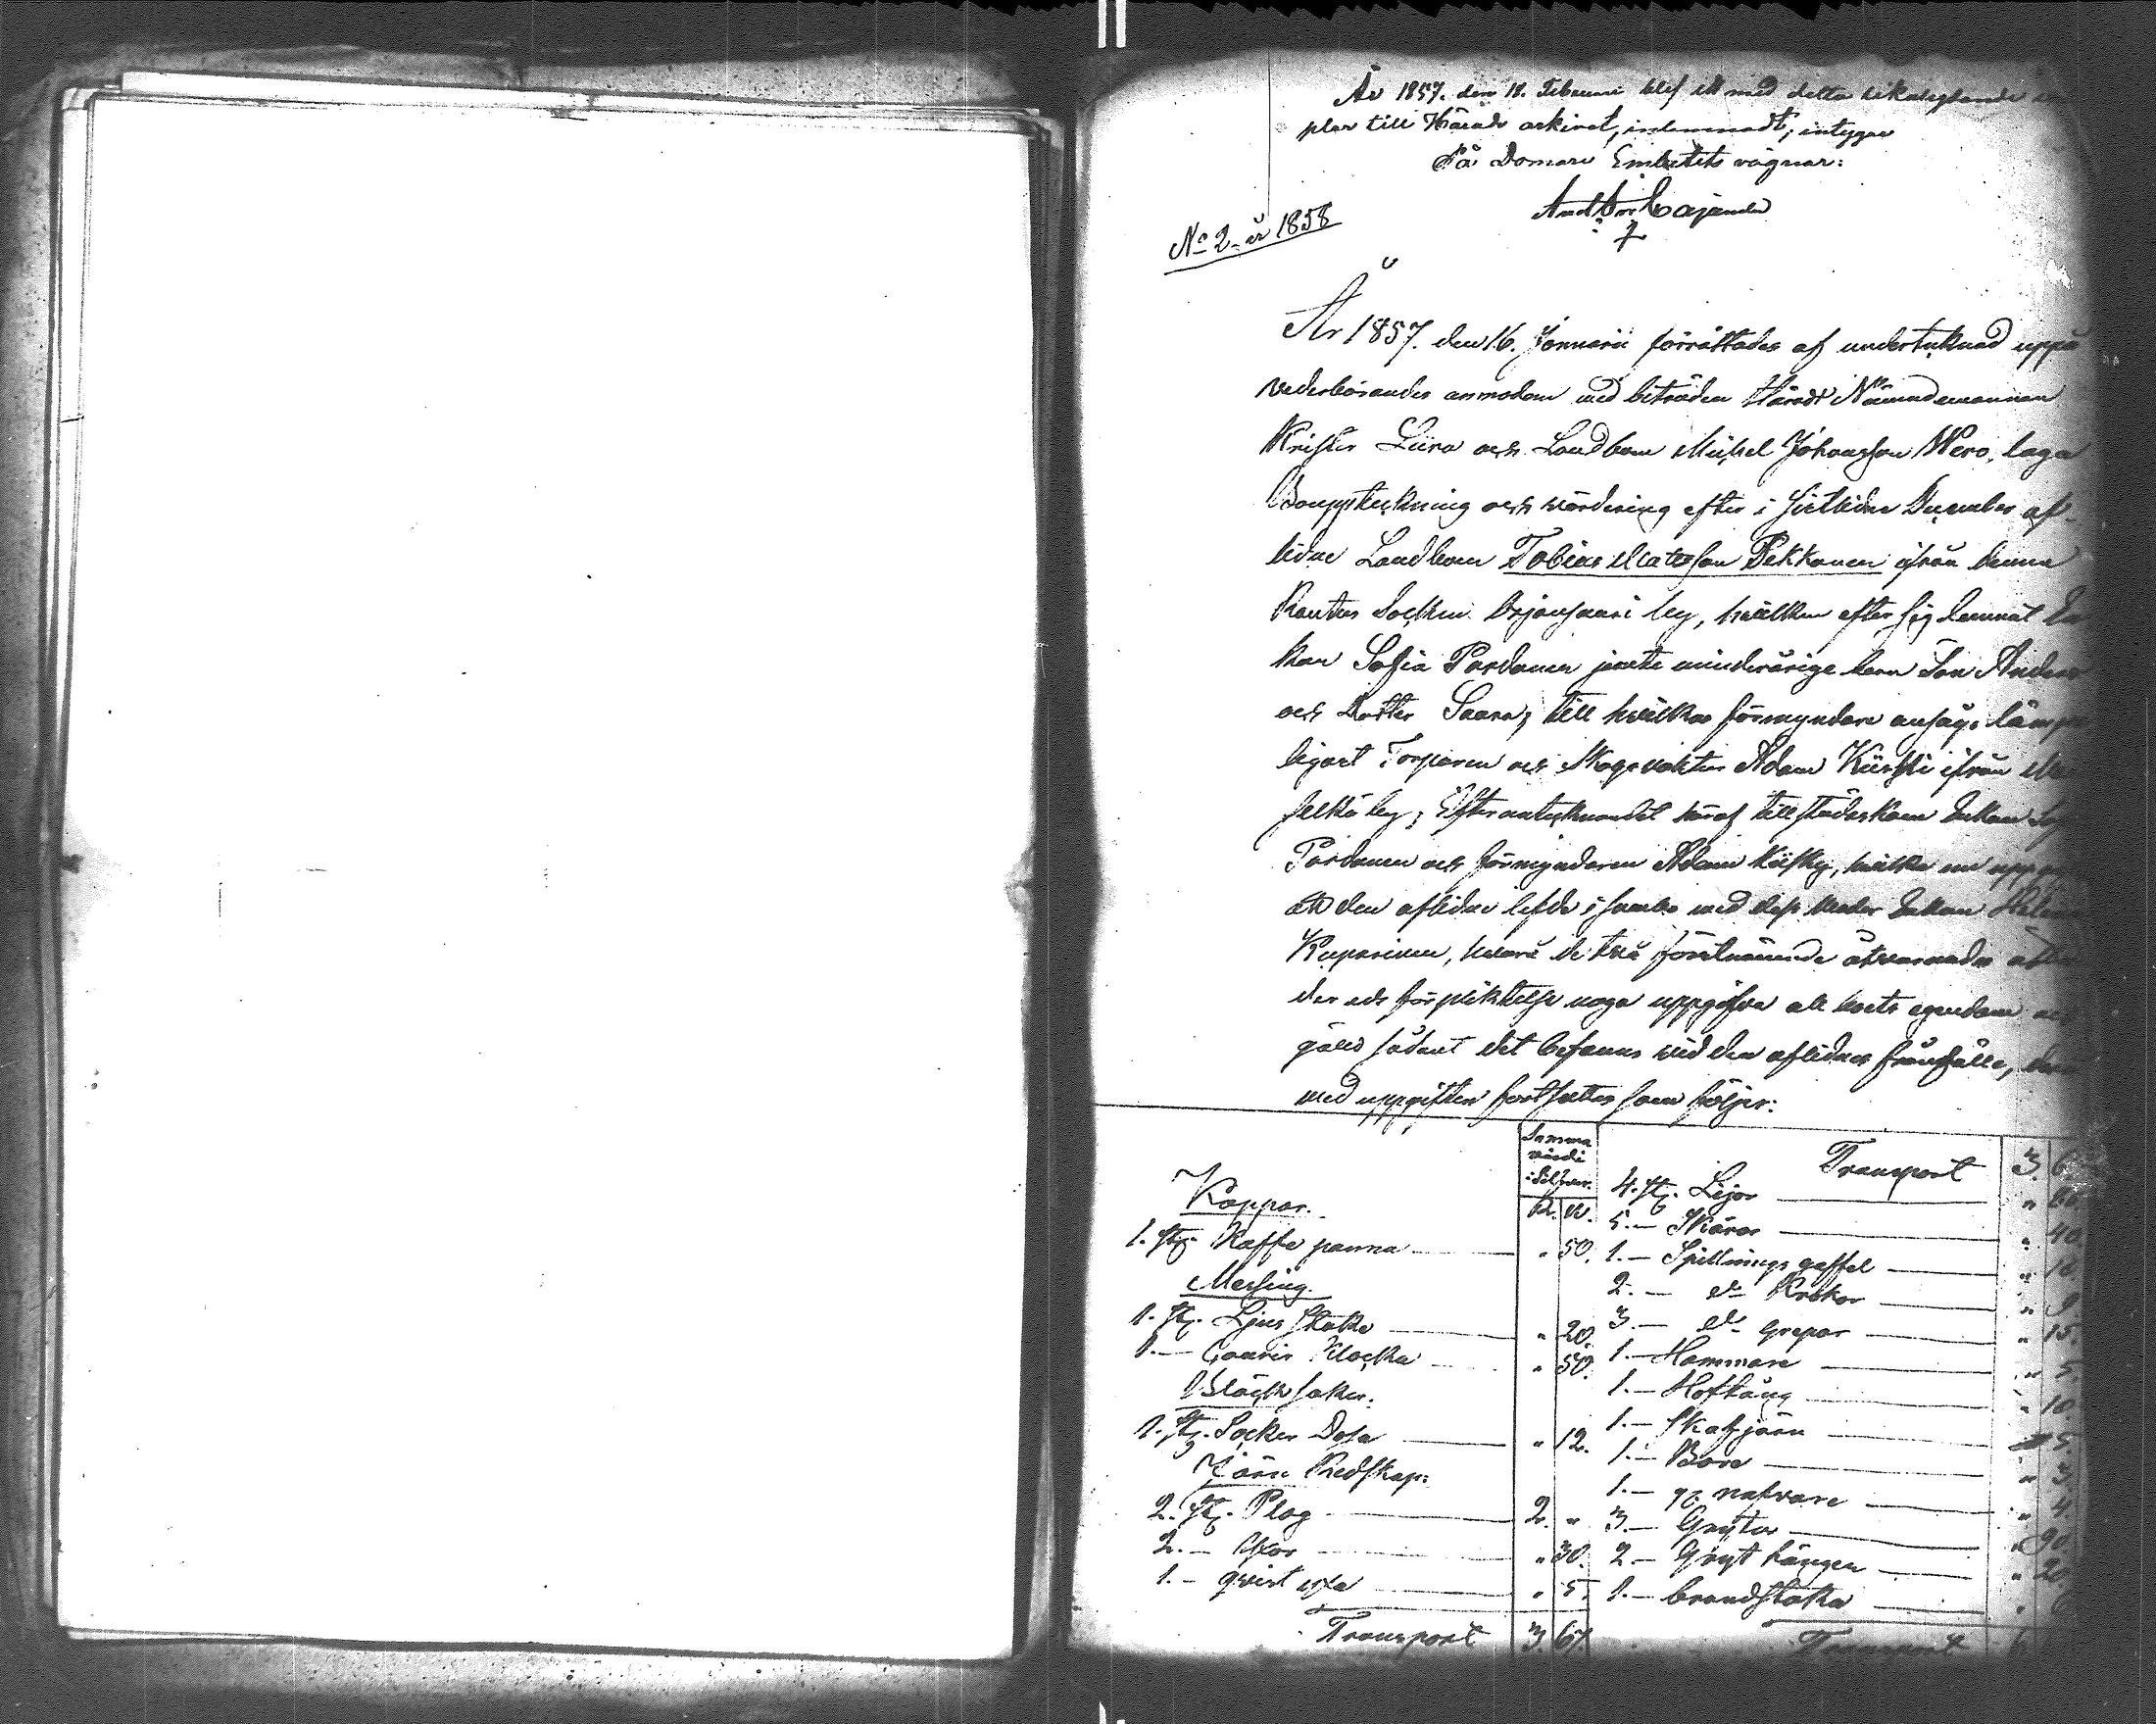 År 1857. den 18. Februari blef ett med detta likalydande
plar till Härads arkivet, inlemnadt; intygar
På Domare Embetets vägnar:
Cajander
No 2 år 1858
År 1857. den 16. Januarii förrättades af undertecknad uppå
vederbörandes anmodan med biträden Härads Nämndemannen
Krister Liira och Landbon Michel Johansson Wero, laga
Bouppteckning och värdering efter i sistlidne December af-
lidne Landbon Tobias Matsson Pekkanen ifrån denna
Rautus Socken Orjansaari by, hvilken efter sig lemnat En
kan Sofia Pardanen jemte minderårige barn Son Anders
och Dotter Saara; till hvilkas förmyndare ansågs lämp
ligast Torparen och Skogsvaktar Adam Kiiski ifrån
selkä by; Efter antecknandet häraf tillstädeskom Enkan
Pardanen och förmyndaren Adam Kiisky, hvilka nu uppgåfvo
att den aflidne lefde i sambo med dess Moder Enkan Helena
Kuparinen, hvarå de två förstnämnde åtvarnades att
der eds förpliktelse noga uppgifva all boets egendom och
gäld sådant det befanns vid den aflidnes frånfälle,
med uppgiften fortsattes som följer:
Samma
värde
i Silfver.
R. K.
Koppar.
1. st. Kaffe panna " 50.
Messing.
1. st. Ljus stake " 20.
1. — Courir Klocka " 50.
Bläck saker.
1. st. Socker Dosa " 12.
Järn Redskap:
2. st. Plog 2. "
2. — Yxor " 30.
1. — qvist yxa " 5.
Transport 3 67.
Transport 3. 6
4. st. Lijor "
5. — Skäror " 40.
1. — Spillnings gaffel " 10.
2. — do Krokor "
3. — do Grepar " 15.
1. — Hammare " 5.
1. — Hoftång " 10.
1. — Skafjärn 5.
1. — Bore " 3.
1. — navare " 4.
3. — Grytor " 90.
2. — Gryt hängen " 20.
1. — brandstaka "
Transport